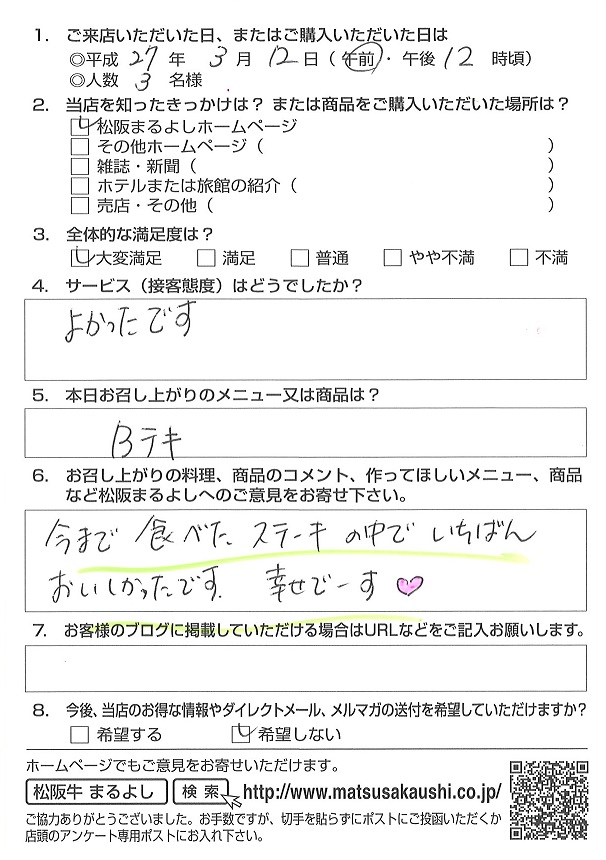 1. ご来店いただいた日、またはご購入いただいた日は
◎平成 27 年 3 月 12 日（午前・午後 12 時頃）
◎人数 3 名様
2. 当店を知ったきっかけは？ または商品をご購入いただいた場所は？
松阪まるよしホームページ
その他ホームページ（ ）
雑誌・新聞（ ）
ホテルまたは旅館の紹介（ ）
売店・その他（ ）
3. 全体的な満足度は？
大変満足 満足 普通 やや不満 不満
4. サービス（接客態度）はどうでしたか？
よかったです
5. 本日お召し上がりのメニュー又は商品は？
Bテキ
6. お召し上がりの料理、商品のコメント、作ってほしいメニュー、商品
など松阪まるよしへのご意見をお寄せ下さい。
今まで食べたステーキの中でいちばん
おいしかったです。幸せでーす♡
7. お客様のブログに掲載していただける場合はURLなどをご記入お願いします。
8. 今後、当店のお得な情報やダイレクトメール、メルマガの送付を希望していただけますか？
希望する 希望しない
ホームページでもご意見をお寄せいただけます。
松阪牛 まるよし 検索 http://www.matsusakaushi.co.jp/
ご協力ありがとうございました。お手数ですが、切手を貼らずにポストにご投函いただくか
店頭のアンケート専用ポストにお入れ下さい。